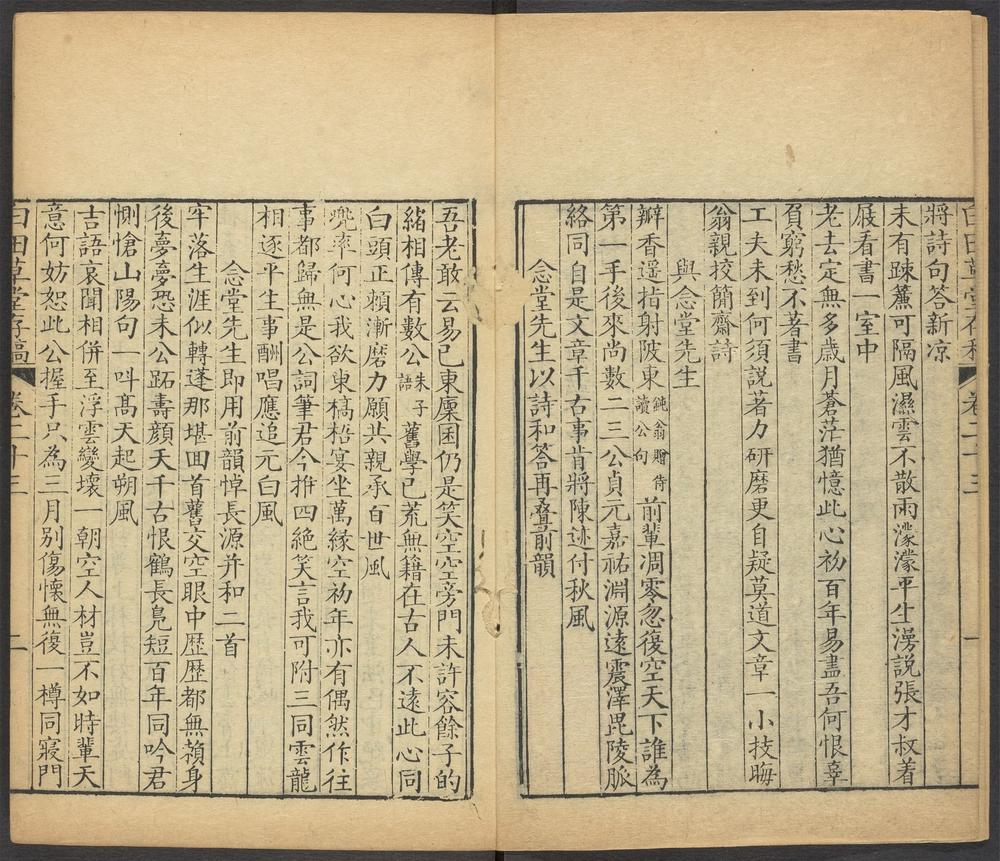 白田草堂存稿 卷二十三 一
將詩句答新凉
未有疎簾可隔風濕雲不散雨濛濛平生湧說張才叔着
屐看書一室中
老去定無多歲月蒼茫猶憶此心初百年易盡吾何恨辜
負窮愁不著書
工夫未到何須説著力研磨更自疑莫道文章一小技晦
翁親挍簡齋詩
與念堂先生
瓣香遥指射陂東鈍翁贈侍讀公句前輩凋零忽復空天下誰為
第一手後來尚數二三公貞元嘉祐淵源遠震澤毘陵脈
絡同自是文章千古事肯將陳迹付秋風
念堂先生以詩和答再叠前韻
吾老敢云易已東廩囷仍是笑空空旁門未許容餘子的
緒相傳有數公朱子語舊學已荒無籍在古人不遠此心同
白頭正賴漸磨力願共親承百世風
兠率何心我欲東槁梧宴坐萬緣空初年亦有偶然作往
事都歸無是公詞筆君今推四絶笑言我可附三同雲龍
相逐平生事酬唱應追元白風
念堂先生即用前韻悼長源并和二首
牢落生涯似轉蓬那堪回首舊交空眼中歴歴都無頼身
後夢夢恐未公跖壽顔夭千古恨鶴長鳧短百年同吟君
惻愴山陽句一呌髙天起朔風
吉語哀聞相併至浮雲變壞一朝空人材豈不如時輩天
意何妨恕此公握手只為三月别傷懷無復一樽同寢門
白田草堂存稿 卷二十三 二